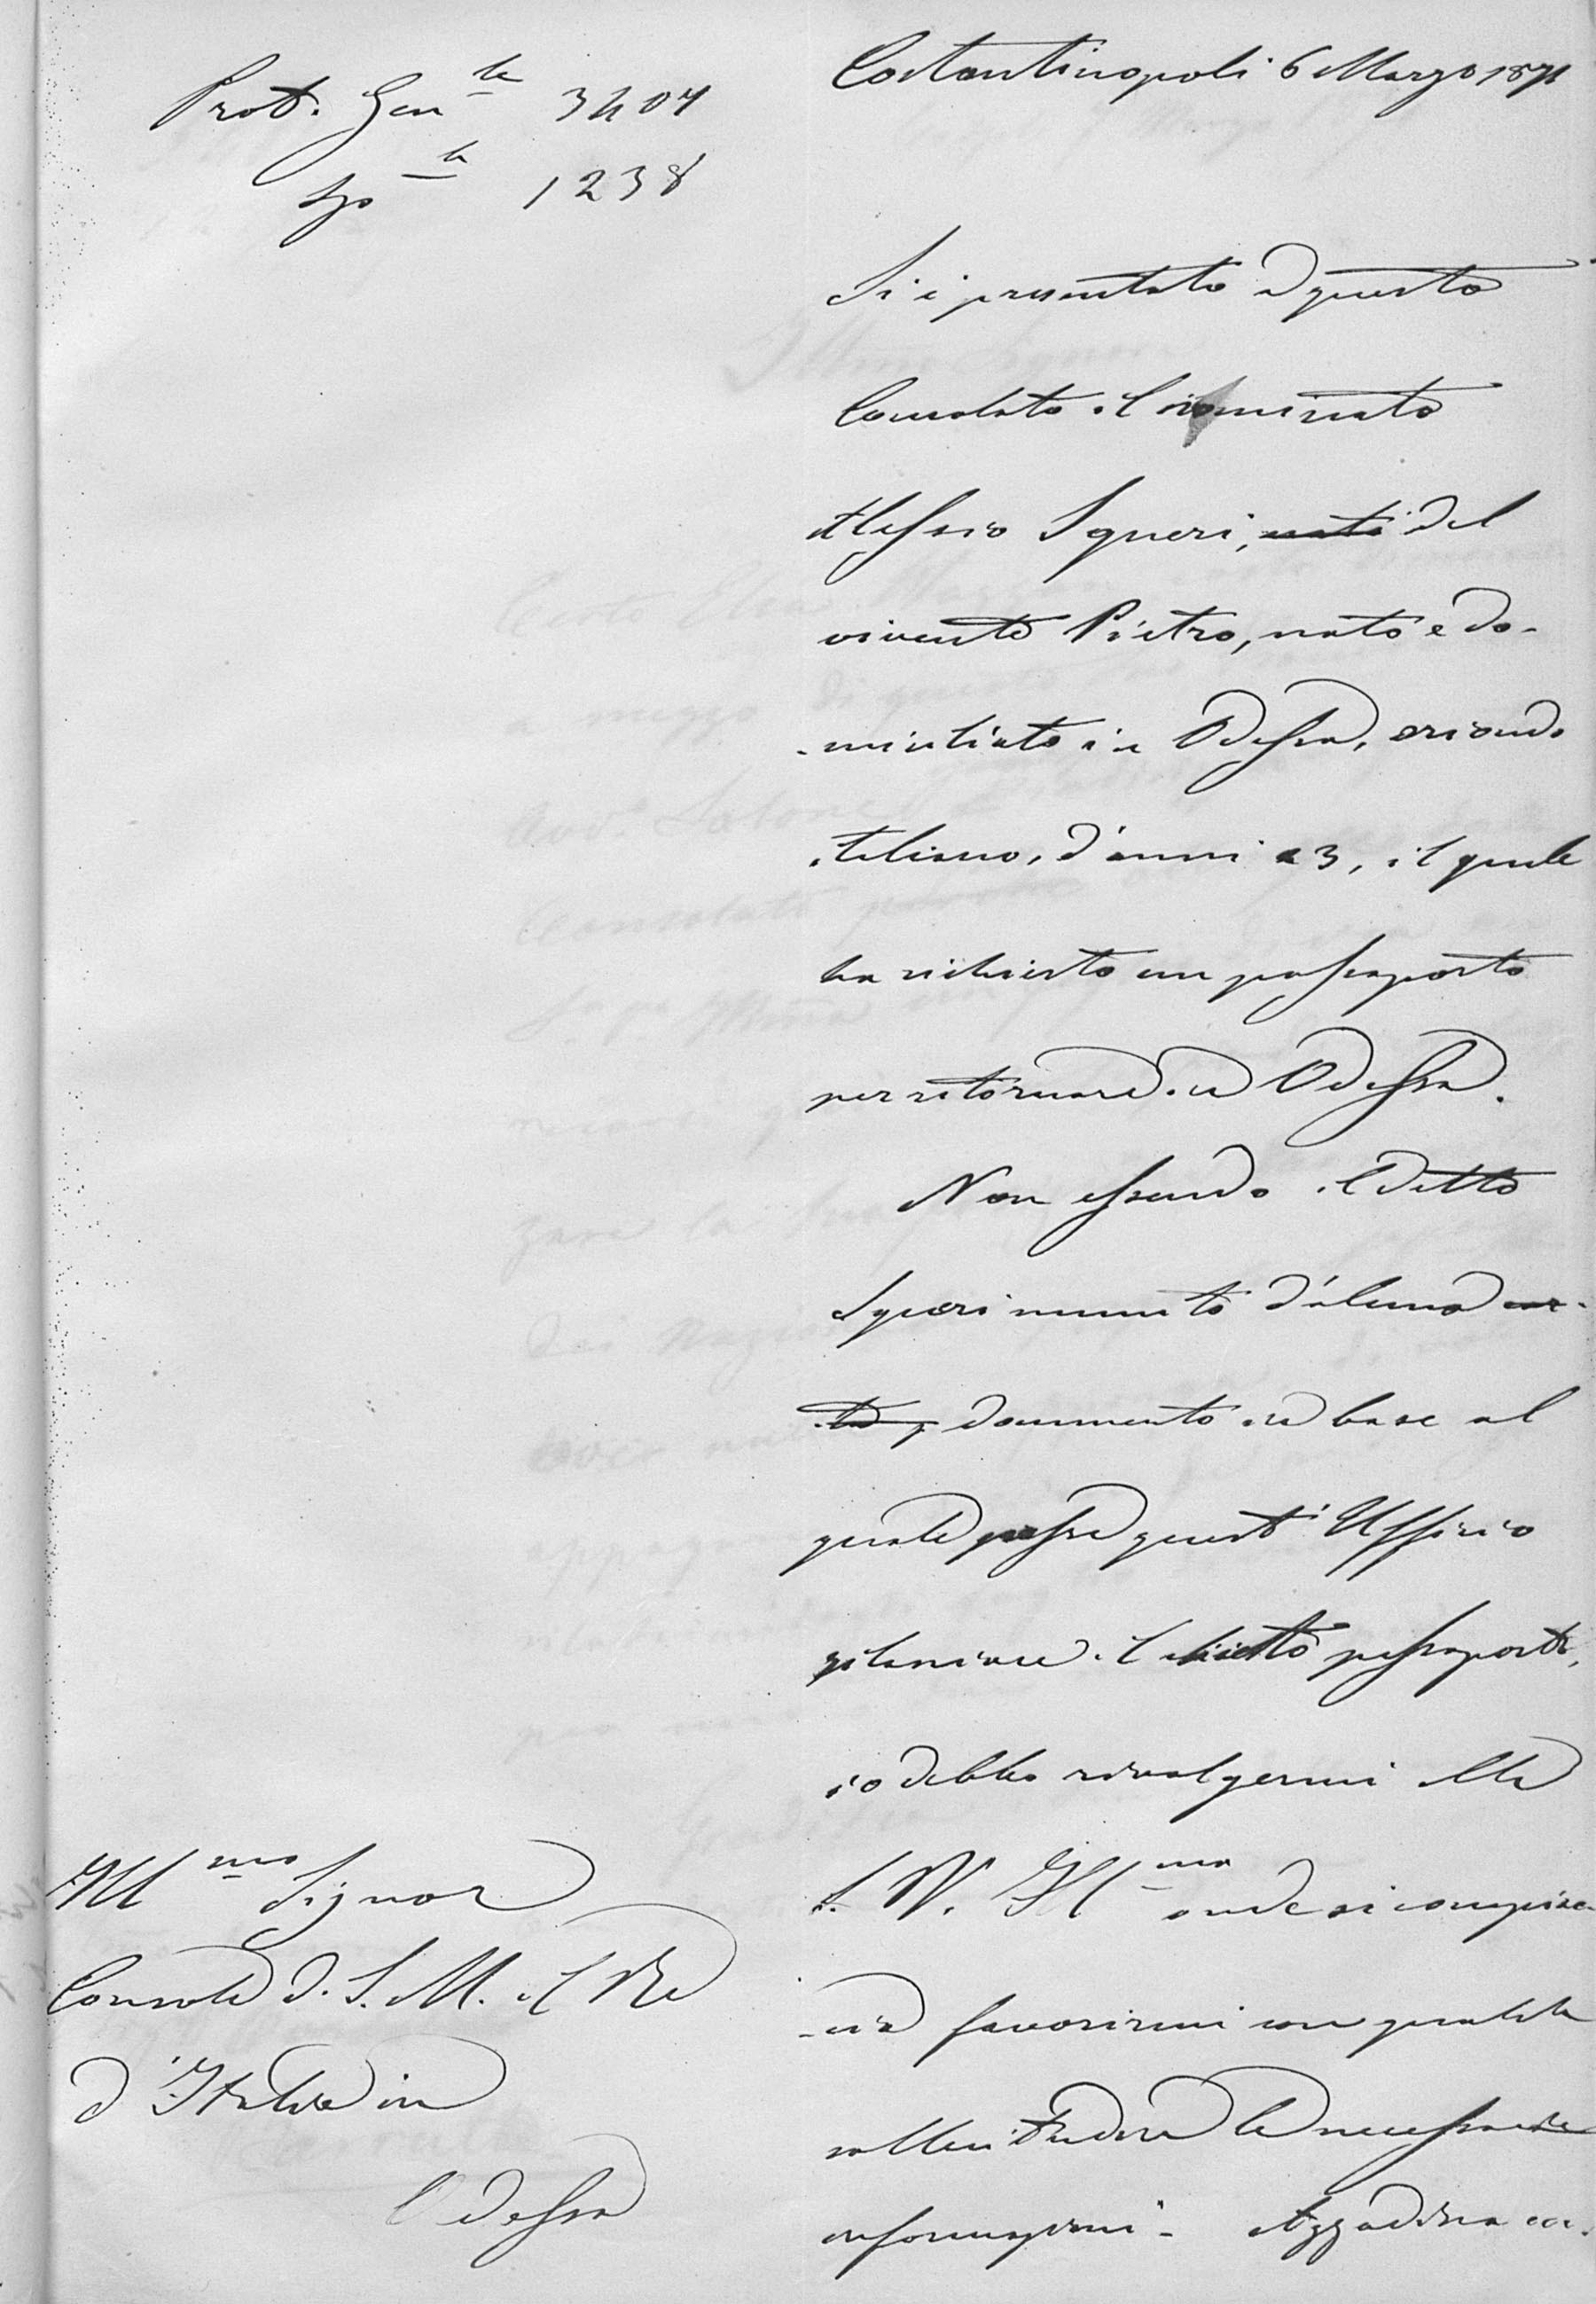 Costantinopoli 6 Marzo 1871
Prot. Gen.le 3407
Sp.le 1238
Si è presentato a questo
Consolato il nominato
Alessio Squeri, nato del
vivente Pietro, nato e do-
-miciliato in Odessa, oriundo
italiano, d'anni 23, il quale
ha richiesto un passaporto
per ritornare in Odessa.
Non essendo il detto
Squeri munito d'alcuno
documento in base al
quale possa quest'Ufficio
rilasciare il chiesto passaporto,
io debbo rivolgermi alla
S. V. Ill.ma onde si compiac-
-cia favorirmi con qualche
sollecitudine le necessarie
informazioni. Aggradisca ecc.
Ill.mo Signor
Console di S. M. il Re
d'Italia in
Odessa